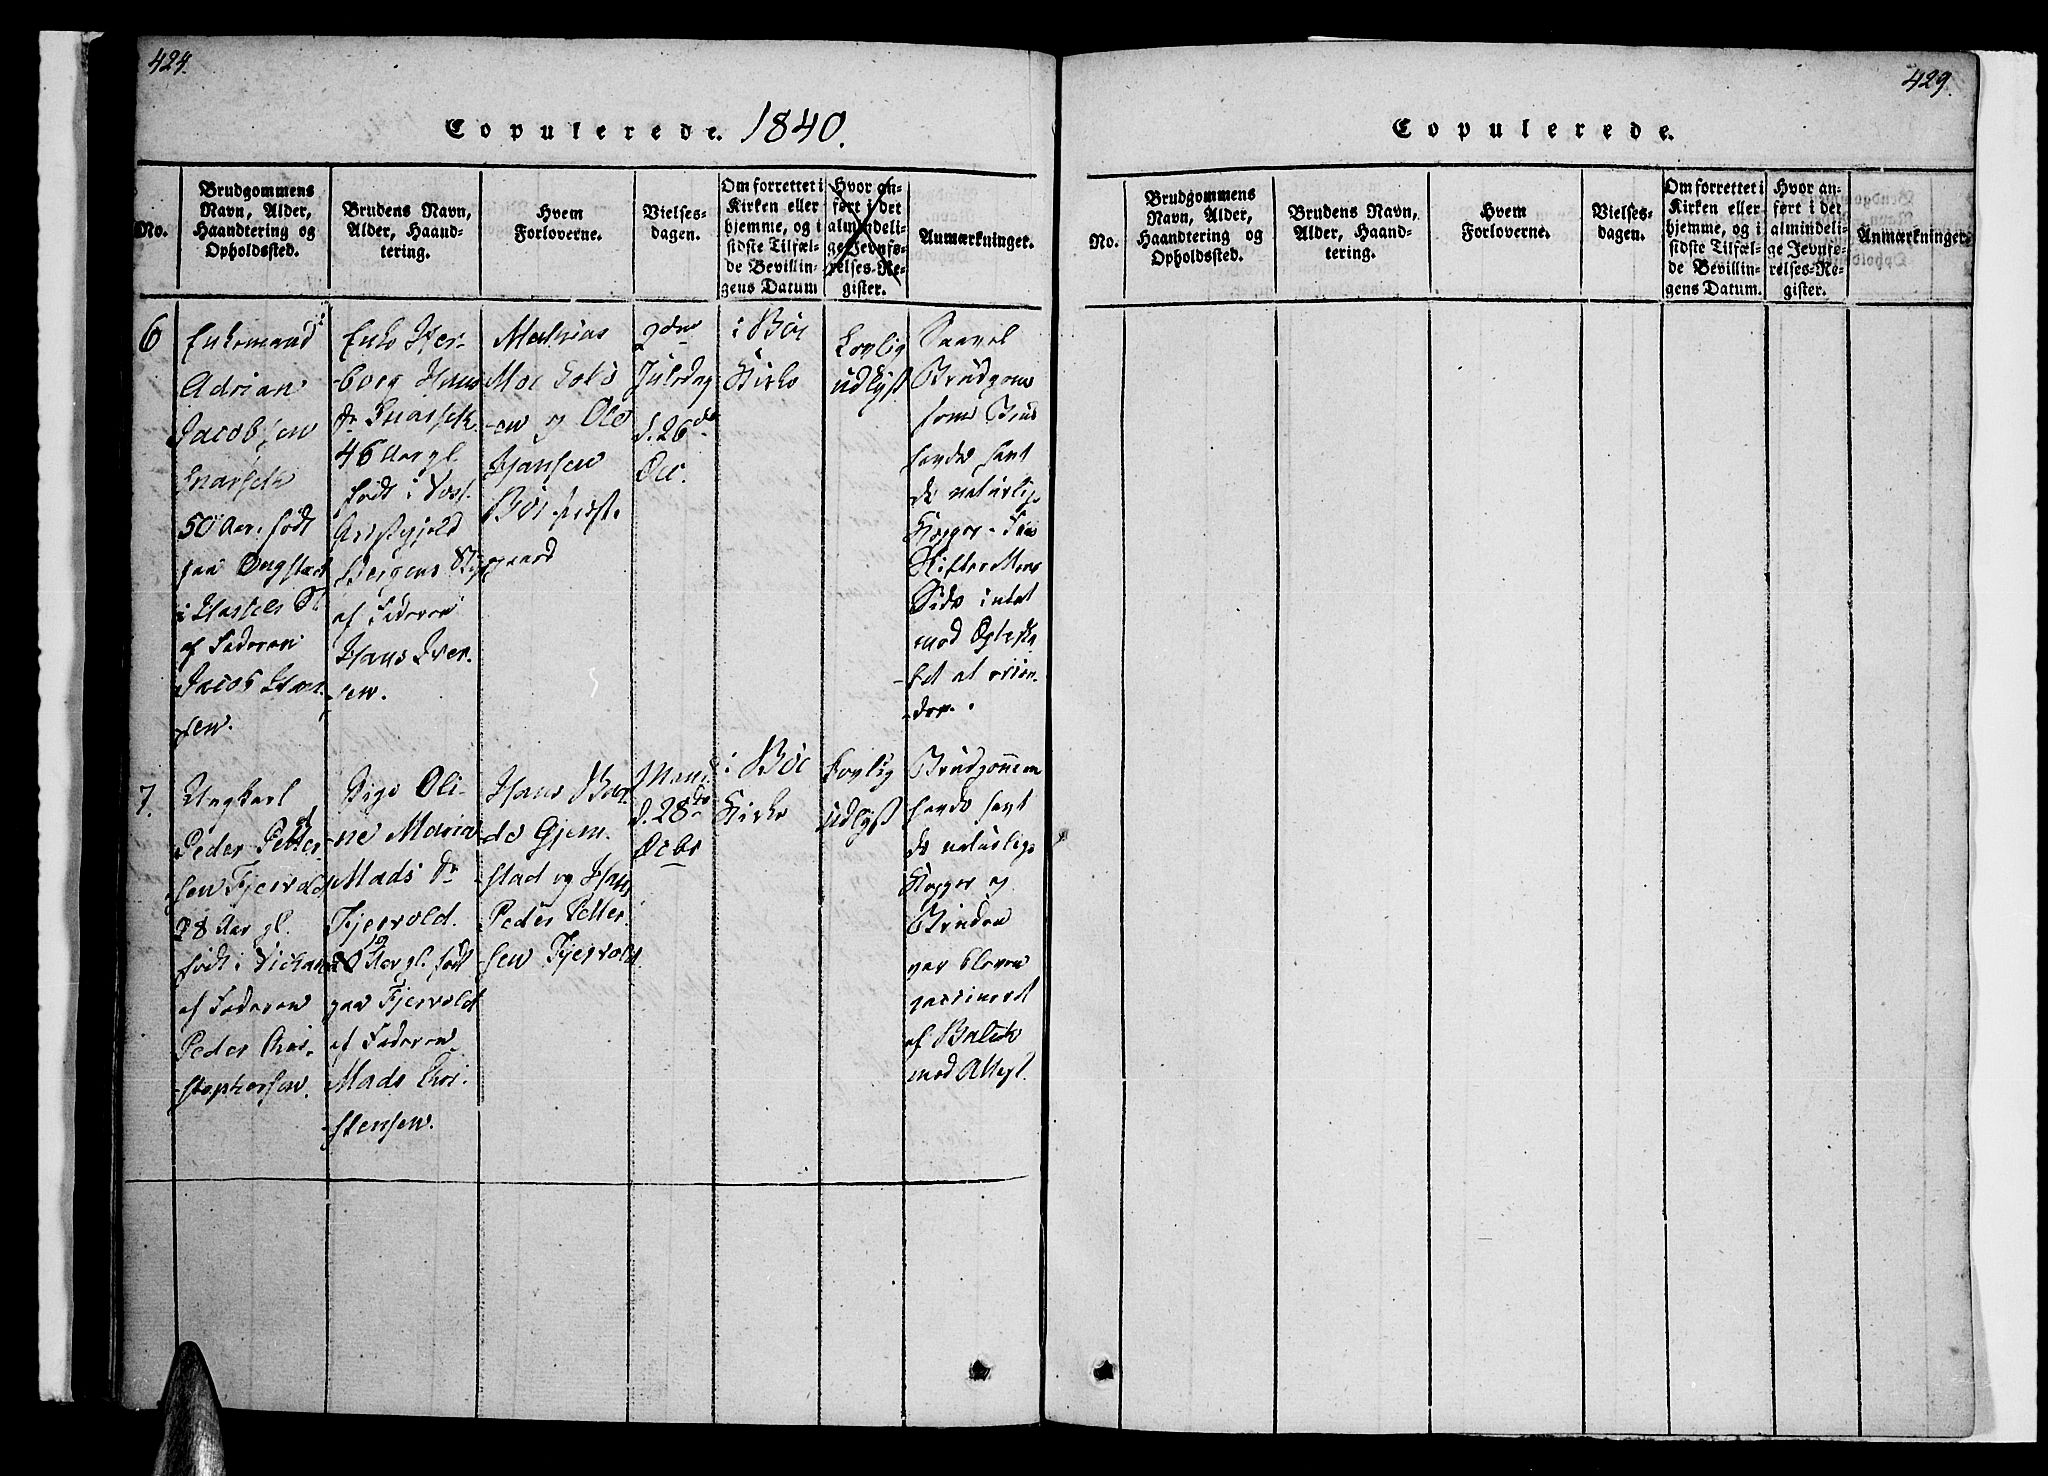 424.
Copulerede. 1840.
No.
Brudgommens
Navn, Alder,
Haandtering og
Opholdssted.
Brudens Navn,
Alder, Haand-
tering.
Hvem
Forloverne.
Vielses-
dagen.
Om forrettet i
Kirken eller
hjemme, og i
sidste Tilfæl-
de Bevillin-
gens Datum
Hvor an-
ført i det
almindeli-
ge Jevnfø-
relses-Re-
gister.
Anmærkninger.
6
Enkemand
Adrian
Jacobsen
Snarseth
50 Aar, født
paa Ongstad
i Hassels
af Faderen
Jacob Han-
sen.
Enke Her-
borg Hans
dr Snarseth
46 Aar gl.
født i Voss
Bergens Stift
af Faderen
Hans Iver-
sen.
Mathias
Moe
-en og Ole
Hansen
Böe
2den
Juledag
d. 26de
Dec.
i Böe
Kirke
Lovlig
udlyst
Saavel
Brudgom
som Brud
havde havt
de naturlige
Kopper. Fra
Skifterettens
Side intet
mod Ægteska
-bet at erin-
-dre.
7.
Ungkarl
Peder Petter-
sen Fjervold
28 Aar gl.
født i
af Faderen
Peder Chri-
-stophersen.
Pige Oli-
ne Maria
Mads Dr
Fjervold.
19 Aar gl. født
paa Fjervold
af Faderen
Mads Chri-
-stensen.
Hans
Gjem-
stad og Hans
Peder Petter-
sen Fjervold.
d. 28de
Decbr
i Böe
Kirke
Lovlig
udlyst
Brudgommen
havde havt
de naturlige
Kopper og
Bruden
var bleven
vaccineret
af
med Attest.
429.
Copulerede.
No.
Brudgommens
Navn, Alder,
Haandtering og
Opholdssted.
Brudens Navn,
Alder, Haand-
tering.
Hvem
Forloverne.
Vielses-
dagen.
Om forrettet i
Kirken eller
hjemme, og i
sidste Tilfæl-
de Bevillin-
gens Datum.
Hvor an-
ført i det
almindeli-
ge Jevnfø-
relses-Re-
gister.
Anmærkninger.